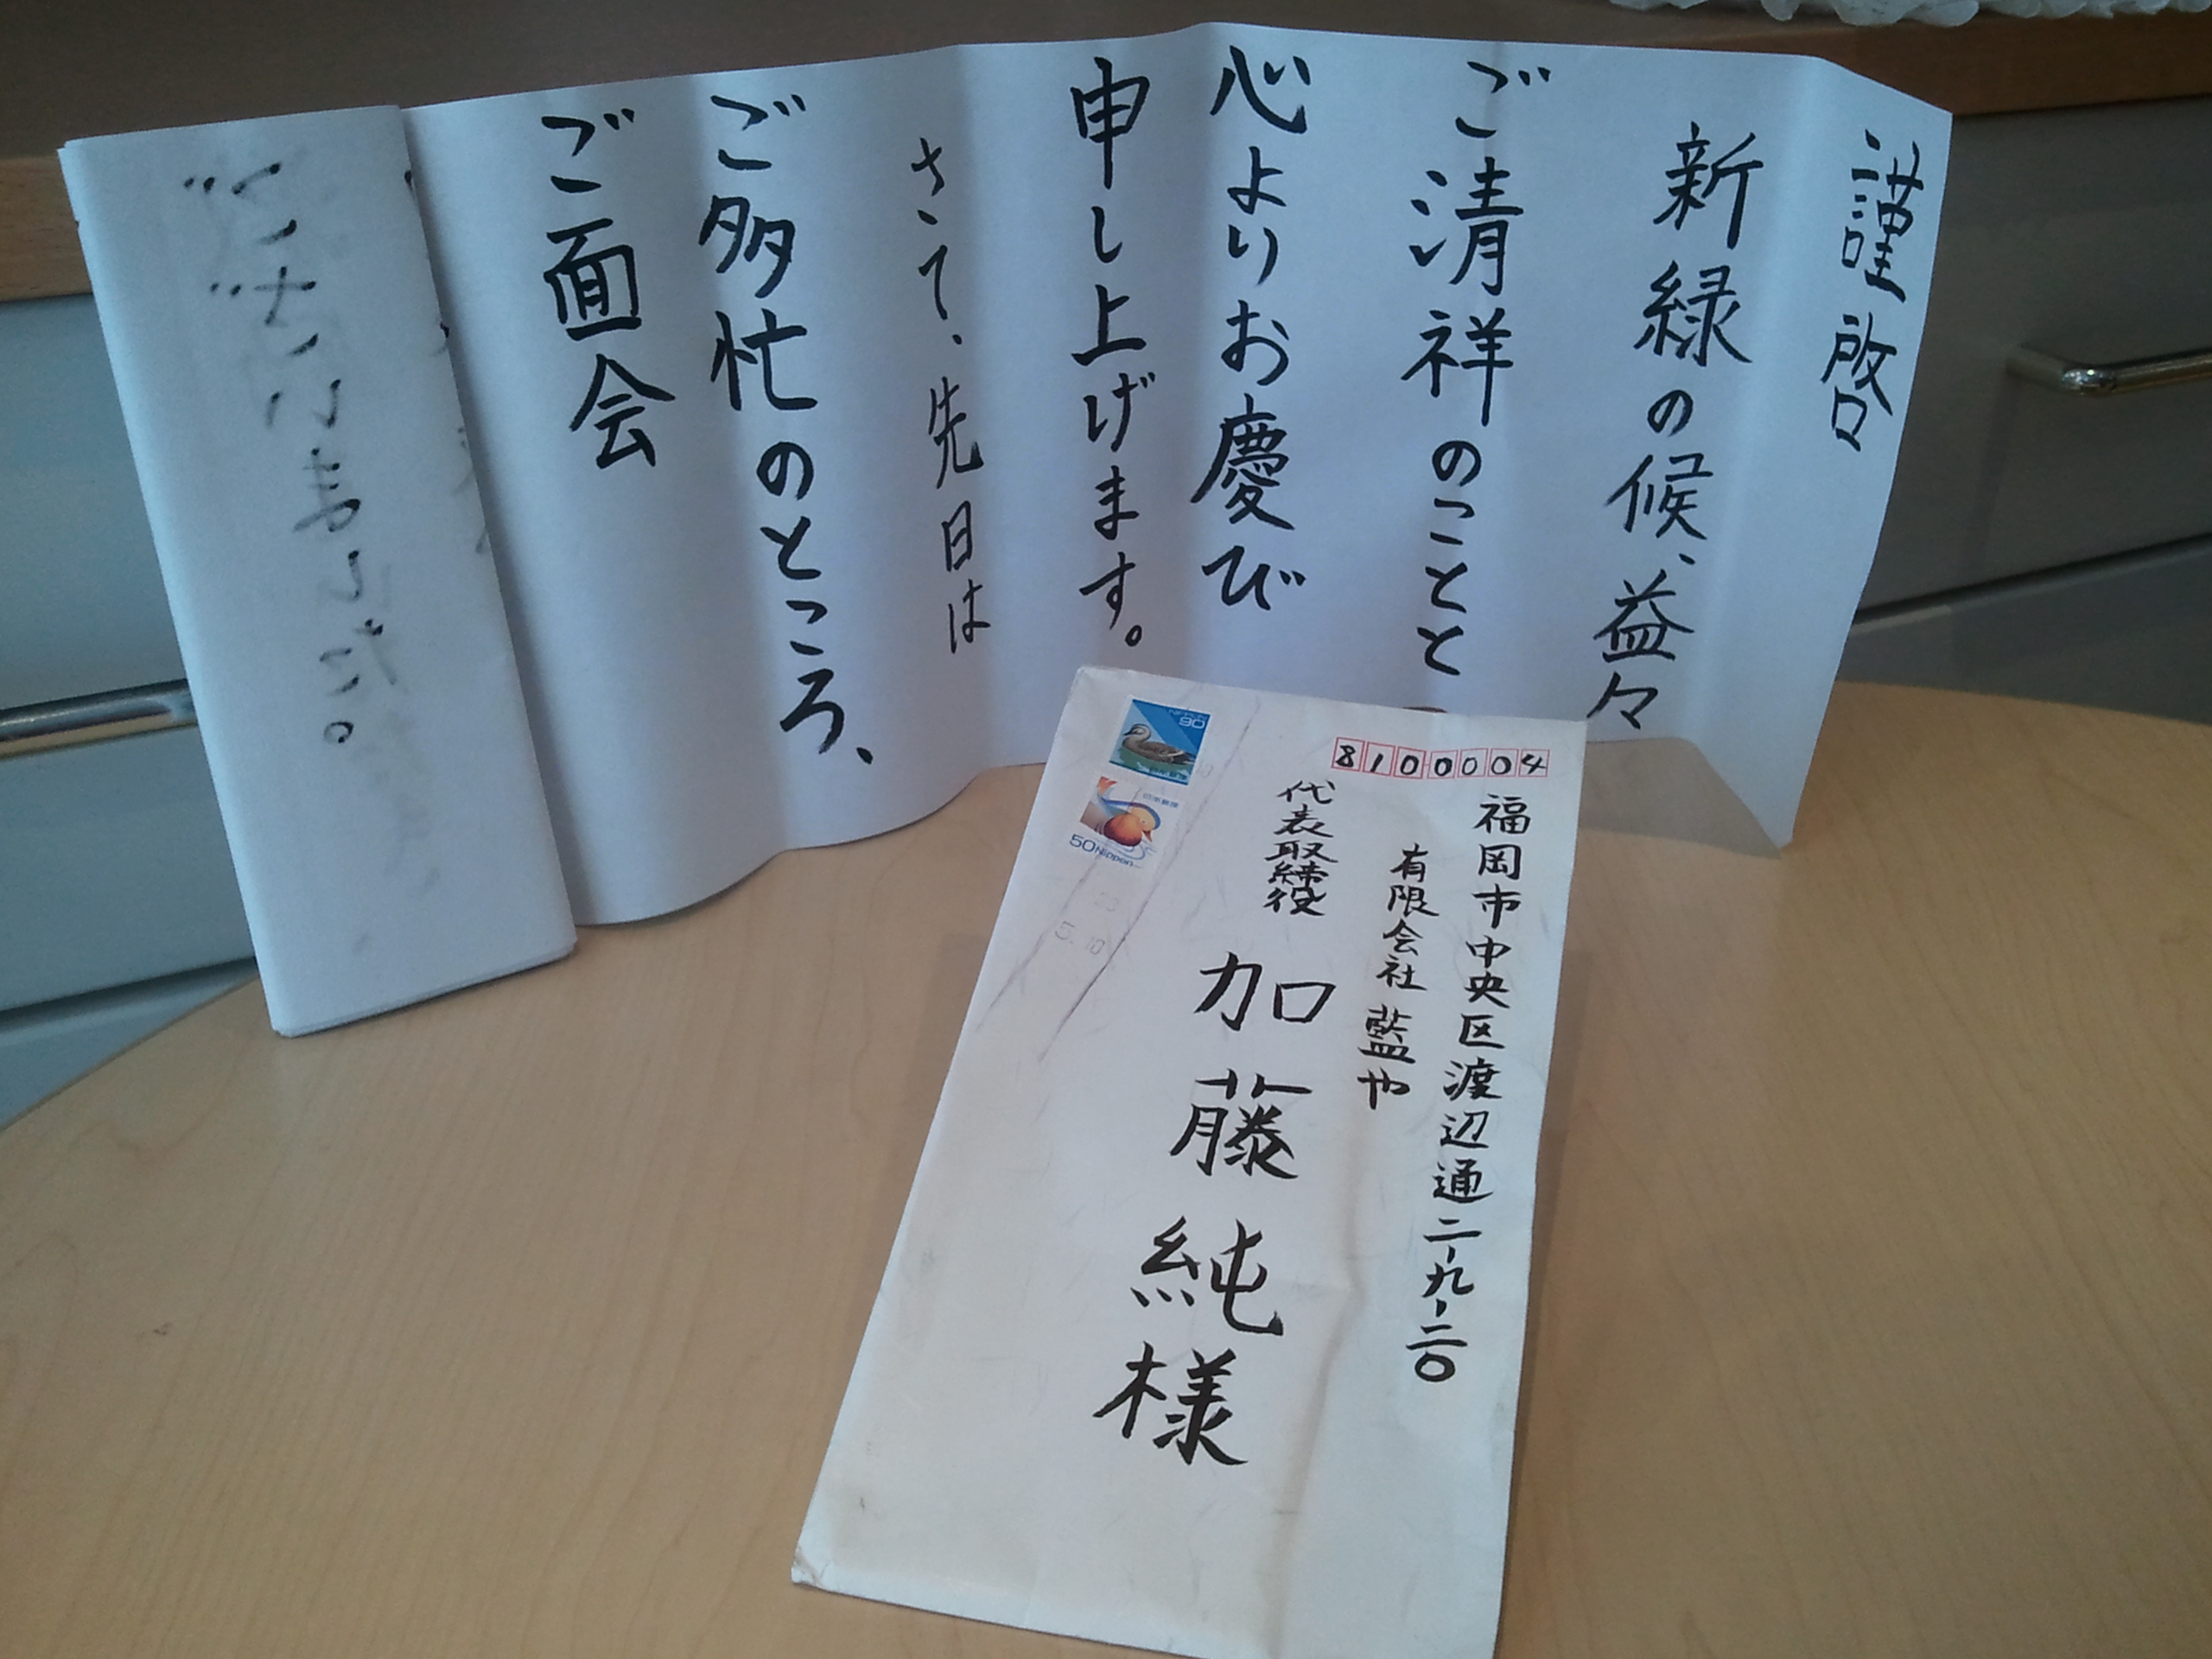 謹啓
新緑の候、益々
ご清祥のことと
心よりお慶び
申し上げます。
さて、先日は
ご多忙のところ、
ご面会
8100004
福岡市中央区渡辺通二-九-二〇
有限会社 藍や
代表取締役
加藤純様
NIPPON
90
日本郵便
日本郵便
50 Nippon
5.10